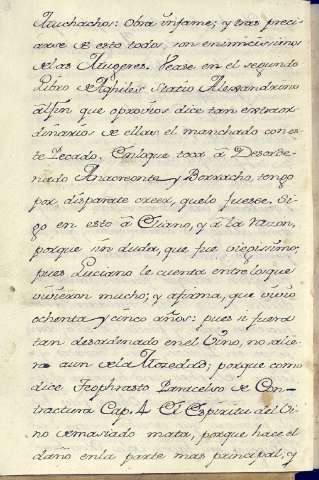 Muchachos: Obra infame; y tras preci
arse de esto todos, son enimicissimos
de las Mugeres. Vease en el segundo
Libro de Aghiles Stacio Alessandrino
alfin que aprovios dice tan extraor
dinarios de ellas el manchado con es
te Pecado. En loque toca â Desorde
nado Anacreonte y Borracho, tengo
por, disparate creer, quelo fuesse. Si
go en esto â Eliano, y â la razon,
porque sin duda, que fue viegissimo;
pues Luciano le cuenta entre los que
vivieron mucho; y afirma, que vivio
ochenta y cinco años: pues si fuera
tan desordenado en el Vino, no alle
ra aun dela Mozedad; porque como
dice Teophrasto Paracelso de Con-
tractura Cap. 4. El Espiritu del Vi
no demasiado mata, porque hace el
daño enla parte mas principal; y